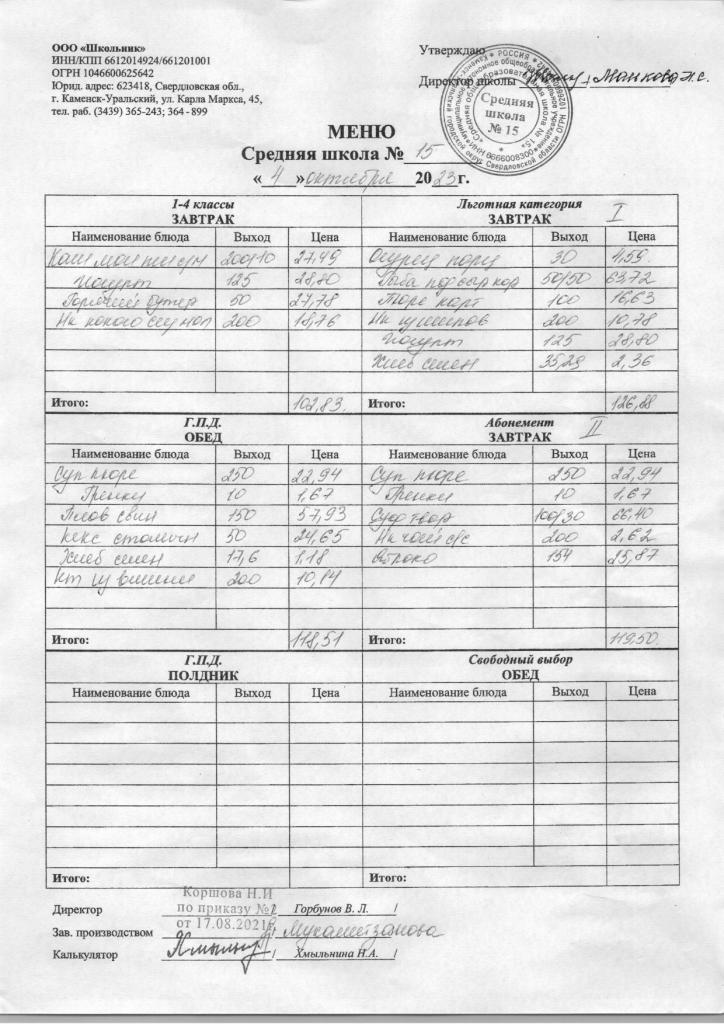 ООО «Школьник»
ИНН/КПП 6612014924/661201001
ОГРН 1046600625642
Юрид. адрес: 623418, Свердловская обл.,
г. Каменск-Уральский, ул. Карла Маркса, 45,
тел. раб. (3439) 365-243; 364 - 899
Утверждаю
Директор школы
Средняя
школа
№ 15
МЕНЮ
Средняя школа № 15
« 4 » октября 2023г.
1-4 классы
ЗАВТРАК
Наименование блюда Выход Цена
200/10 27,49
Йогурт 125 28,80
Горячий бутер 50 27,78
200 18,76
Итого: 102,83
Льготная категория I
ЗАВТРАК
Наименование блюда Выход Цена
Огурец порц 30 4,59
Рыба под сыр кор 50/50 63,72
Пюре карт 100 16,63
200 10,78
Йогурт 125 28,80
Хлеб 2,36
Итого: 126,88
Г.П.Д.
ОБЕД
Наименование блюда Выход Цена
Суп пюре 250 22,94
Гренки 10 1,67
Плов свин 150 57,93
Кекс столичн 50 24,65
Хлеб 17,6 1,18
200 10,14
Итого: 118,51
Абонемент II
ЗАВТРАК
Наименование блюда Выход Цена
Суп пюре 250 22,94
Гренки 10 1,67
Суф твор 100/30 66,40
Нк чай с/с 200 2,62
Яблоко 154 25,87
Итого: 119,50
Г.П.Д.
ПОЛДНИК
Наименование блюда Выход Цена
Итого:
Свободный выбор
ОБЕД
Наименование блюда Выход Цена
Итого:
Коршова Н.И
по приказу №
от 17.08.2021
Директор / Горбунов В. Л. /
Зав. производством
Калькулятор / Хмыльнина Н.А. /